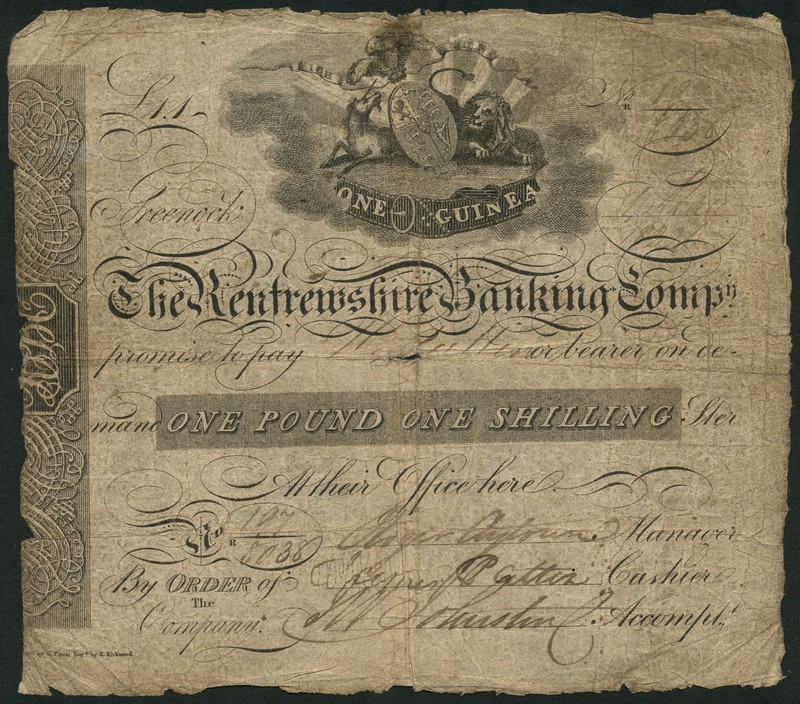 £1,,1
No
ONE GUINEA
Greenock
The Renfrewshire Banking Compy
promise to pay or bearer on de-
mand ONE POUND ONE SHILLING Ster
At their Office here
No 197
5038
Manager
By ORDER of Cashier
The
Company. Johnston Accompt.t
by R. Kirkwood